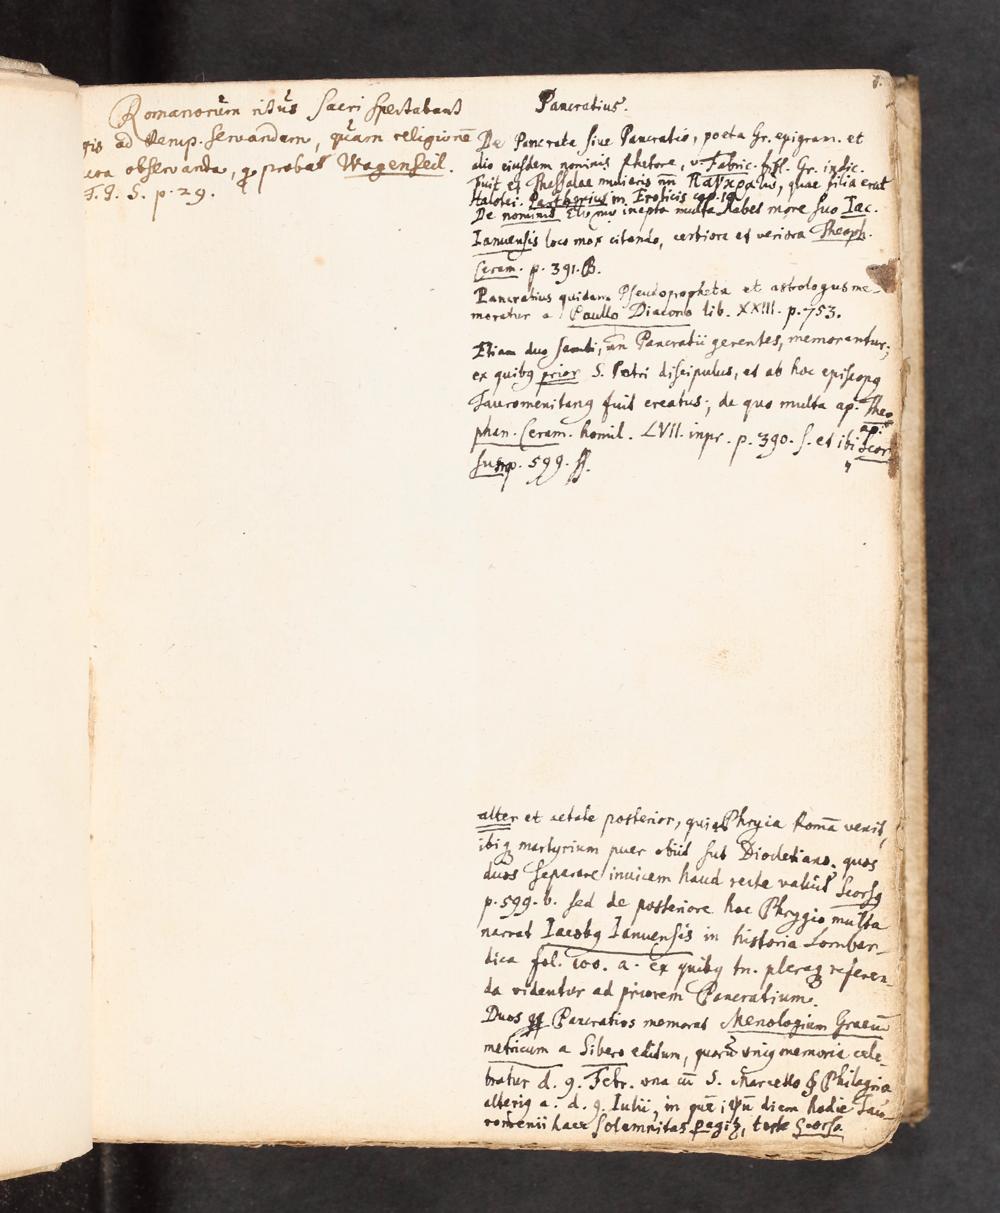 Romanorum ritus sacri spectabant
gis ad temp. servandam, quam religionē
observanda, probat Wagenseil.
T. I. S. p. 29.
Pancratius.
De Pancrate sive Pancratio, poeta Gr. epigram. et
alio eiusdem nominis Rhetore, v. Fabric. bibl. Gr. indic.
Fuit et Thessalae mulieris nn̄ Παγκρατus, quae filia erat
Haloei. Parthenius in Eroticis cap. 19.
De nominis Etymo inepta multa habes more suo Iac.
Ianuensis loco mox citando, certiora et veriora Theoph.
Ceram. p. 391. B.
Pancratius quidam Pseudopropheta et astrologus me-
moratur a Paullo Diacono lib. XXIII. p. 753.
Etiam duo sancti, nn̄ Pancratii gerentes, memorantur;
ex quibꝫ prior S. Petri discipulus, et ab hoc episcopꝫ
Tauromenitanꝫ fuit creatus; de quo multa ap. Theo
phan. Ceram. homil. LVII. inpr. p. 390. s. et ibi ap. Scor
sum p. 599. ss.
alter et aetate posterior, qui e Phrygia Romā venit,
ibiqꝫ martyrium puer obiit sub Diocletiano. quos
duos separare invicem haud recte valuit Scorsꝫ
p. 599. b. sed de posteriore hoc Phrygio multa
narrat Iacobꝫ Ianuensis in historia Lombar-
dica fol. 100. a. ex quibꝫ tn. pleraqꝫ referen-
da videntur ad priorem Pancratium.
Duos qq Pancratios memorat Menologium Graecū
metricum a Sibero editum, quorū unius memoria cele-
bratur d. 9. Febr. una cū S. Marcello & Philagrio
alterius a. d. 9. Iulii, in quē ipsū diem hodie Tau-
romenii haec solemnitas teste Scorso.